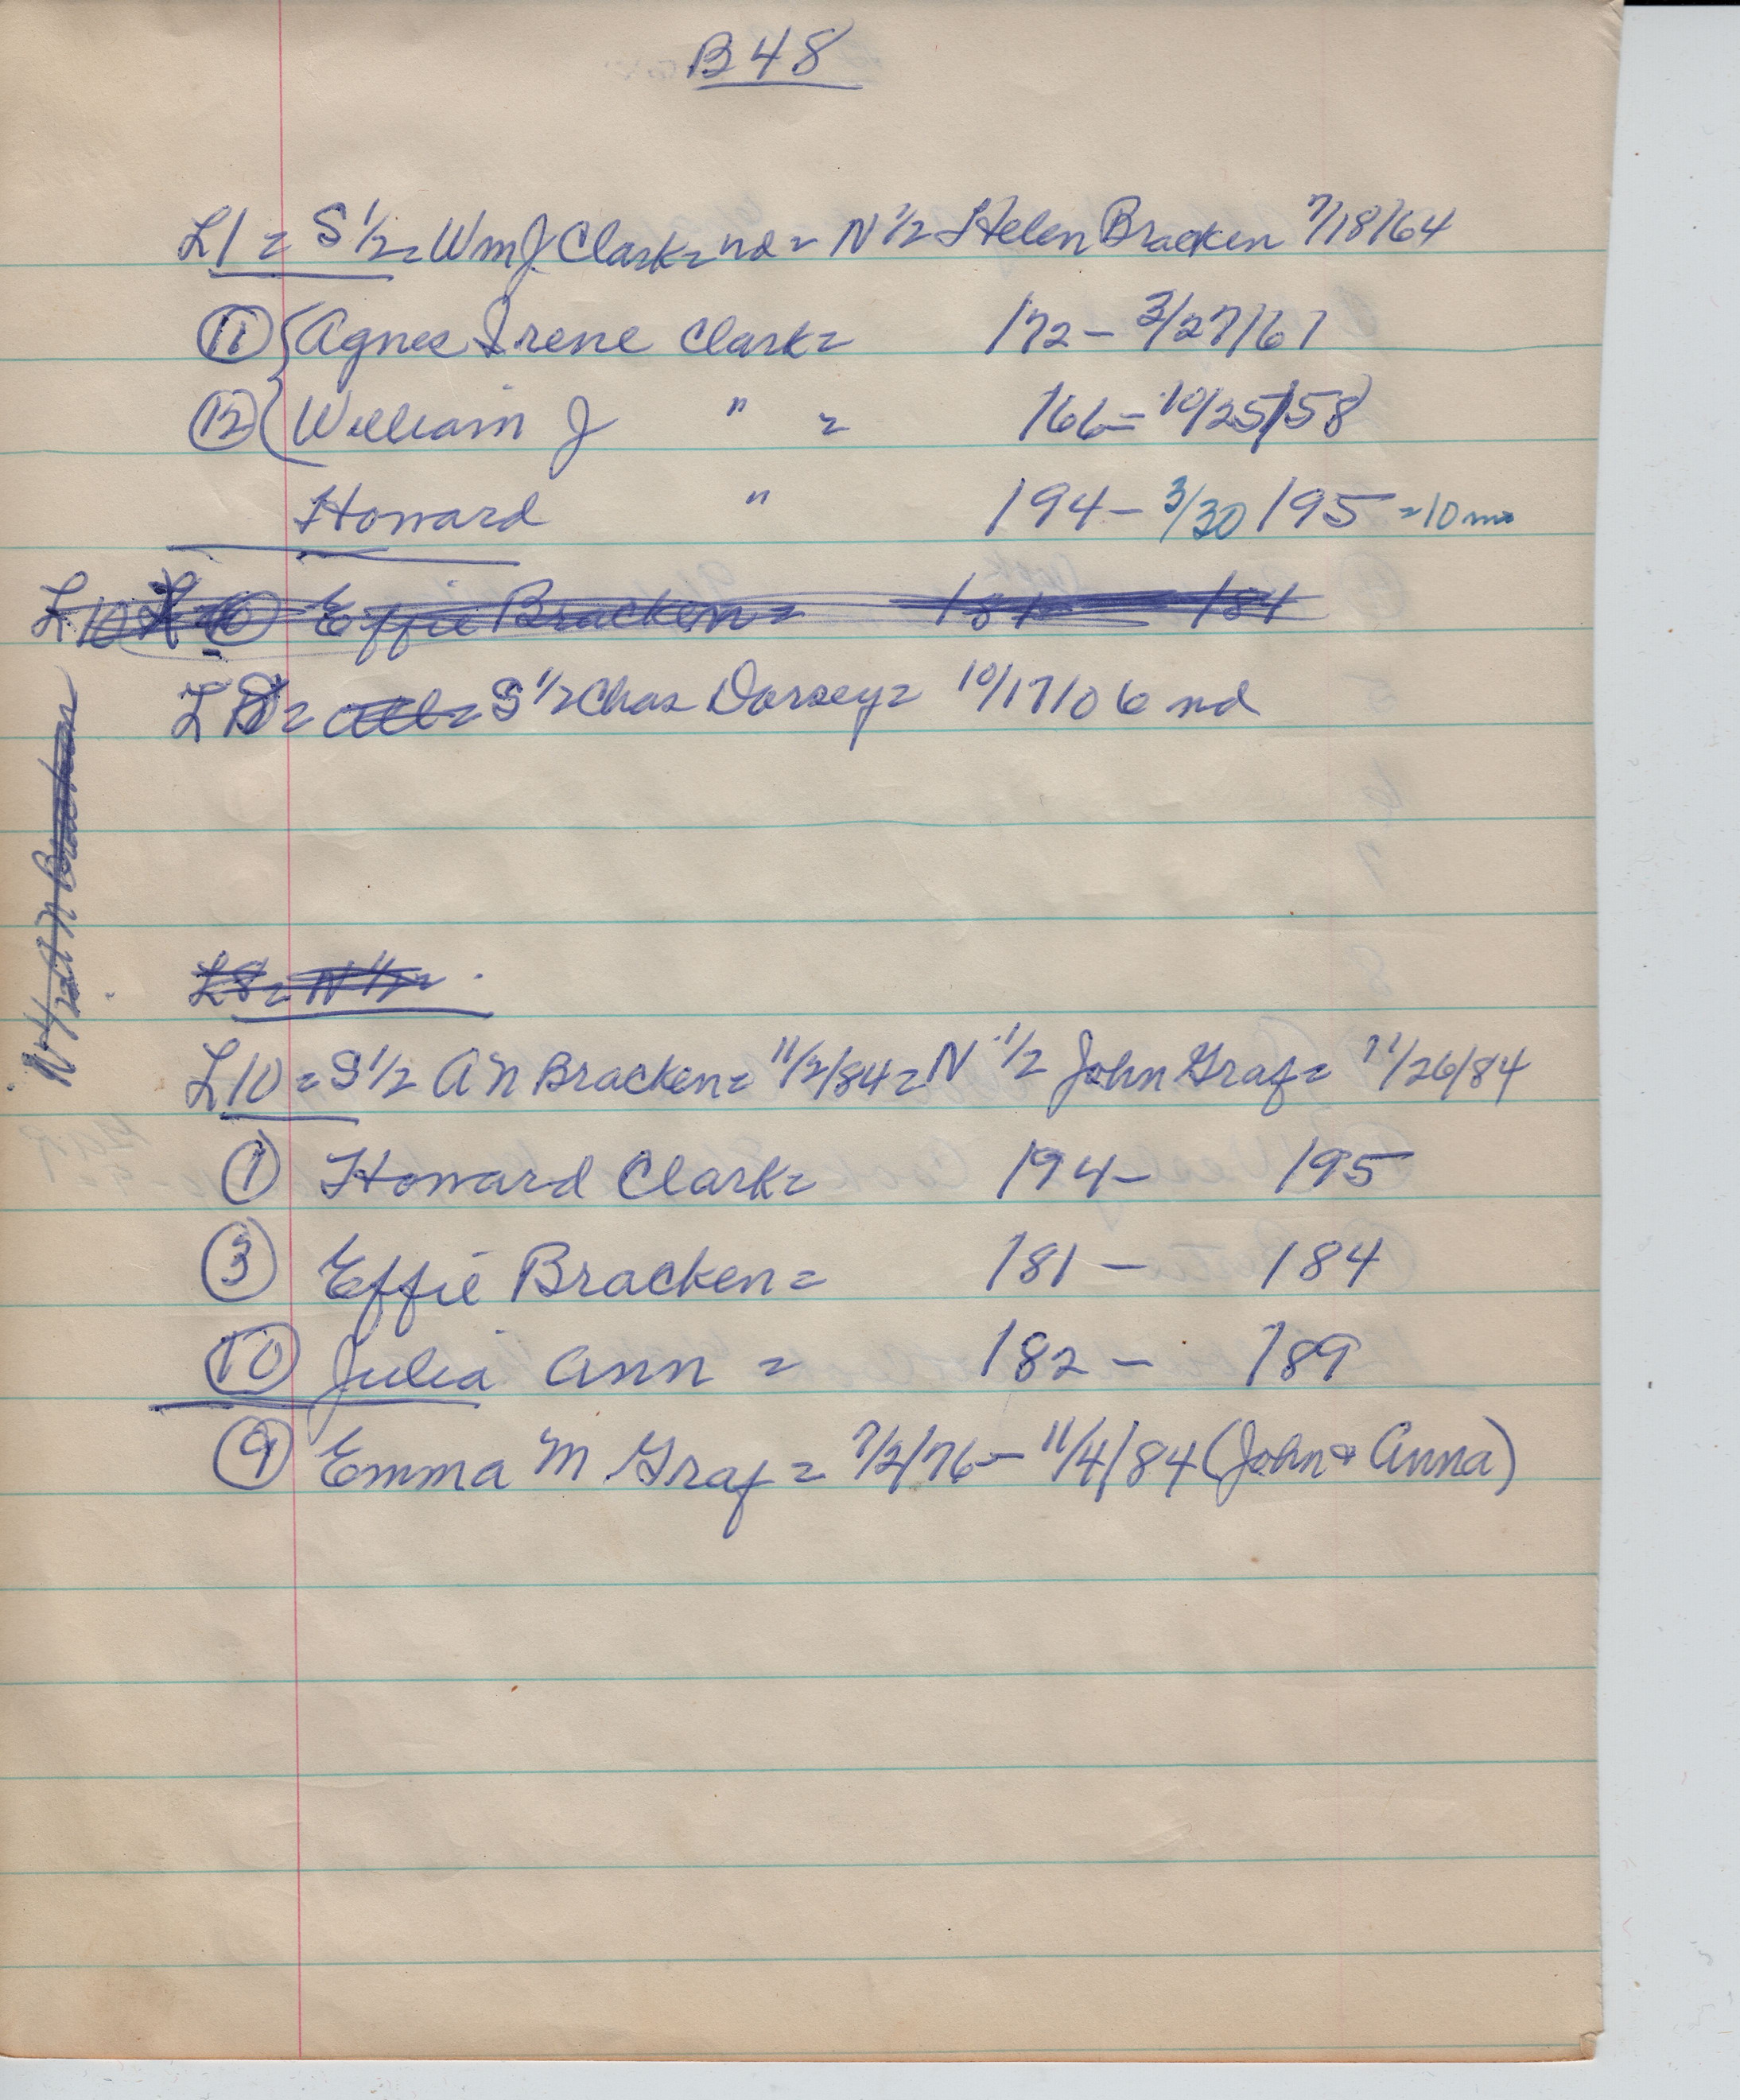 B48
L1 = S 1/2 = Wm J. Clark = nd = N 1/2 Helen Bracken 7/18/64
11 { Agnes Irene Clark = 172 - 3/27/61
12 { William J " = 166 = 10/25/58
Howard " 194 - 3/30 195 = 10 mo
L10 Effie Bracken = 181 184
L = all = S 1/2 Chas Dorsey = 10/17/06 nd
N 1/2 A N Bracken
L8 = N 1/2 =
L10 = S 1/2 A N Bracken = 11/2/84 = N 1/2 John Graf = 11/26/84
1 Howard Clark = 194 - 195
3 Effie Bracken = 181 - 184
10 Julia Ann = 182 - 189
9 Emma M Graf = 7/2/76 - 11/4/84 (John & Anna)